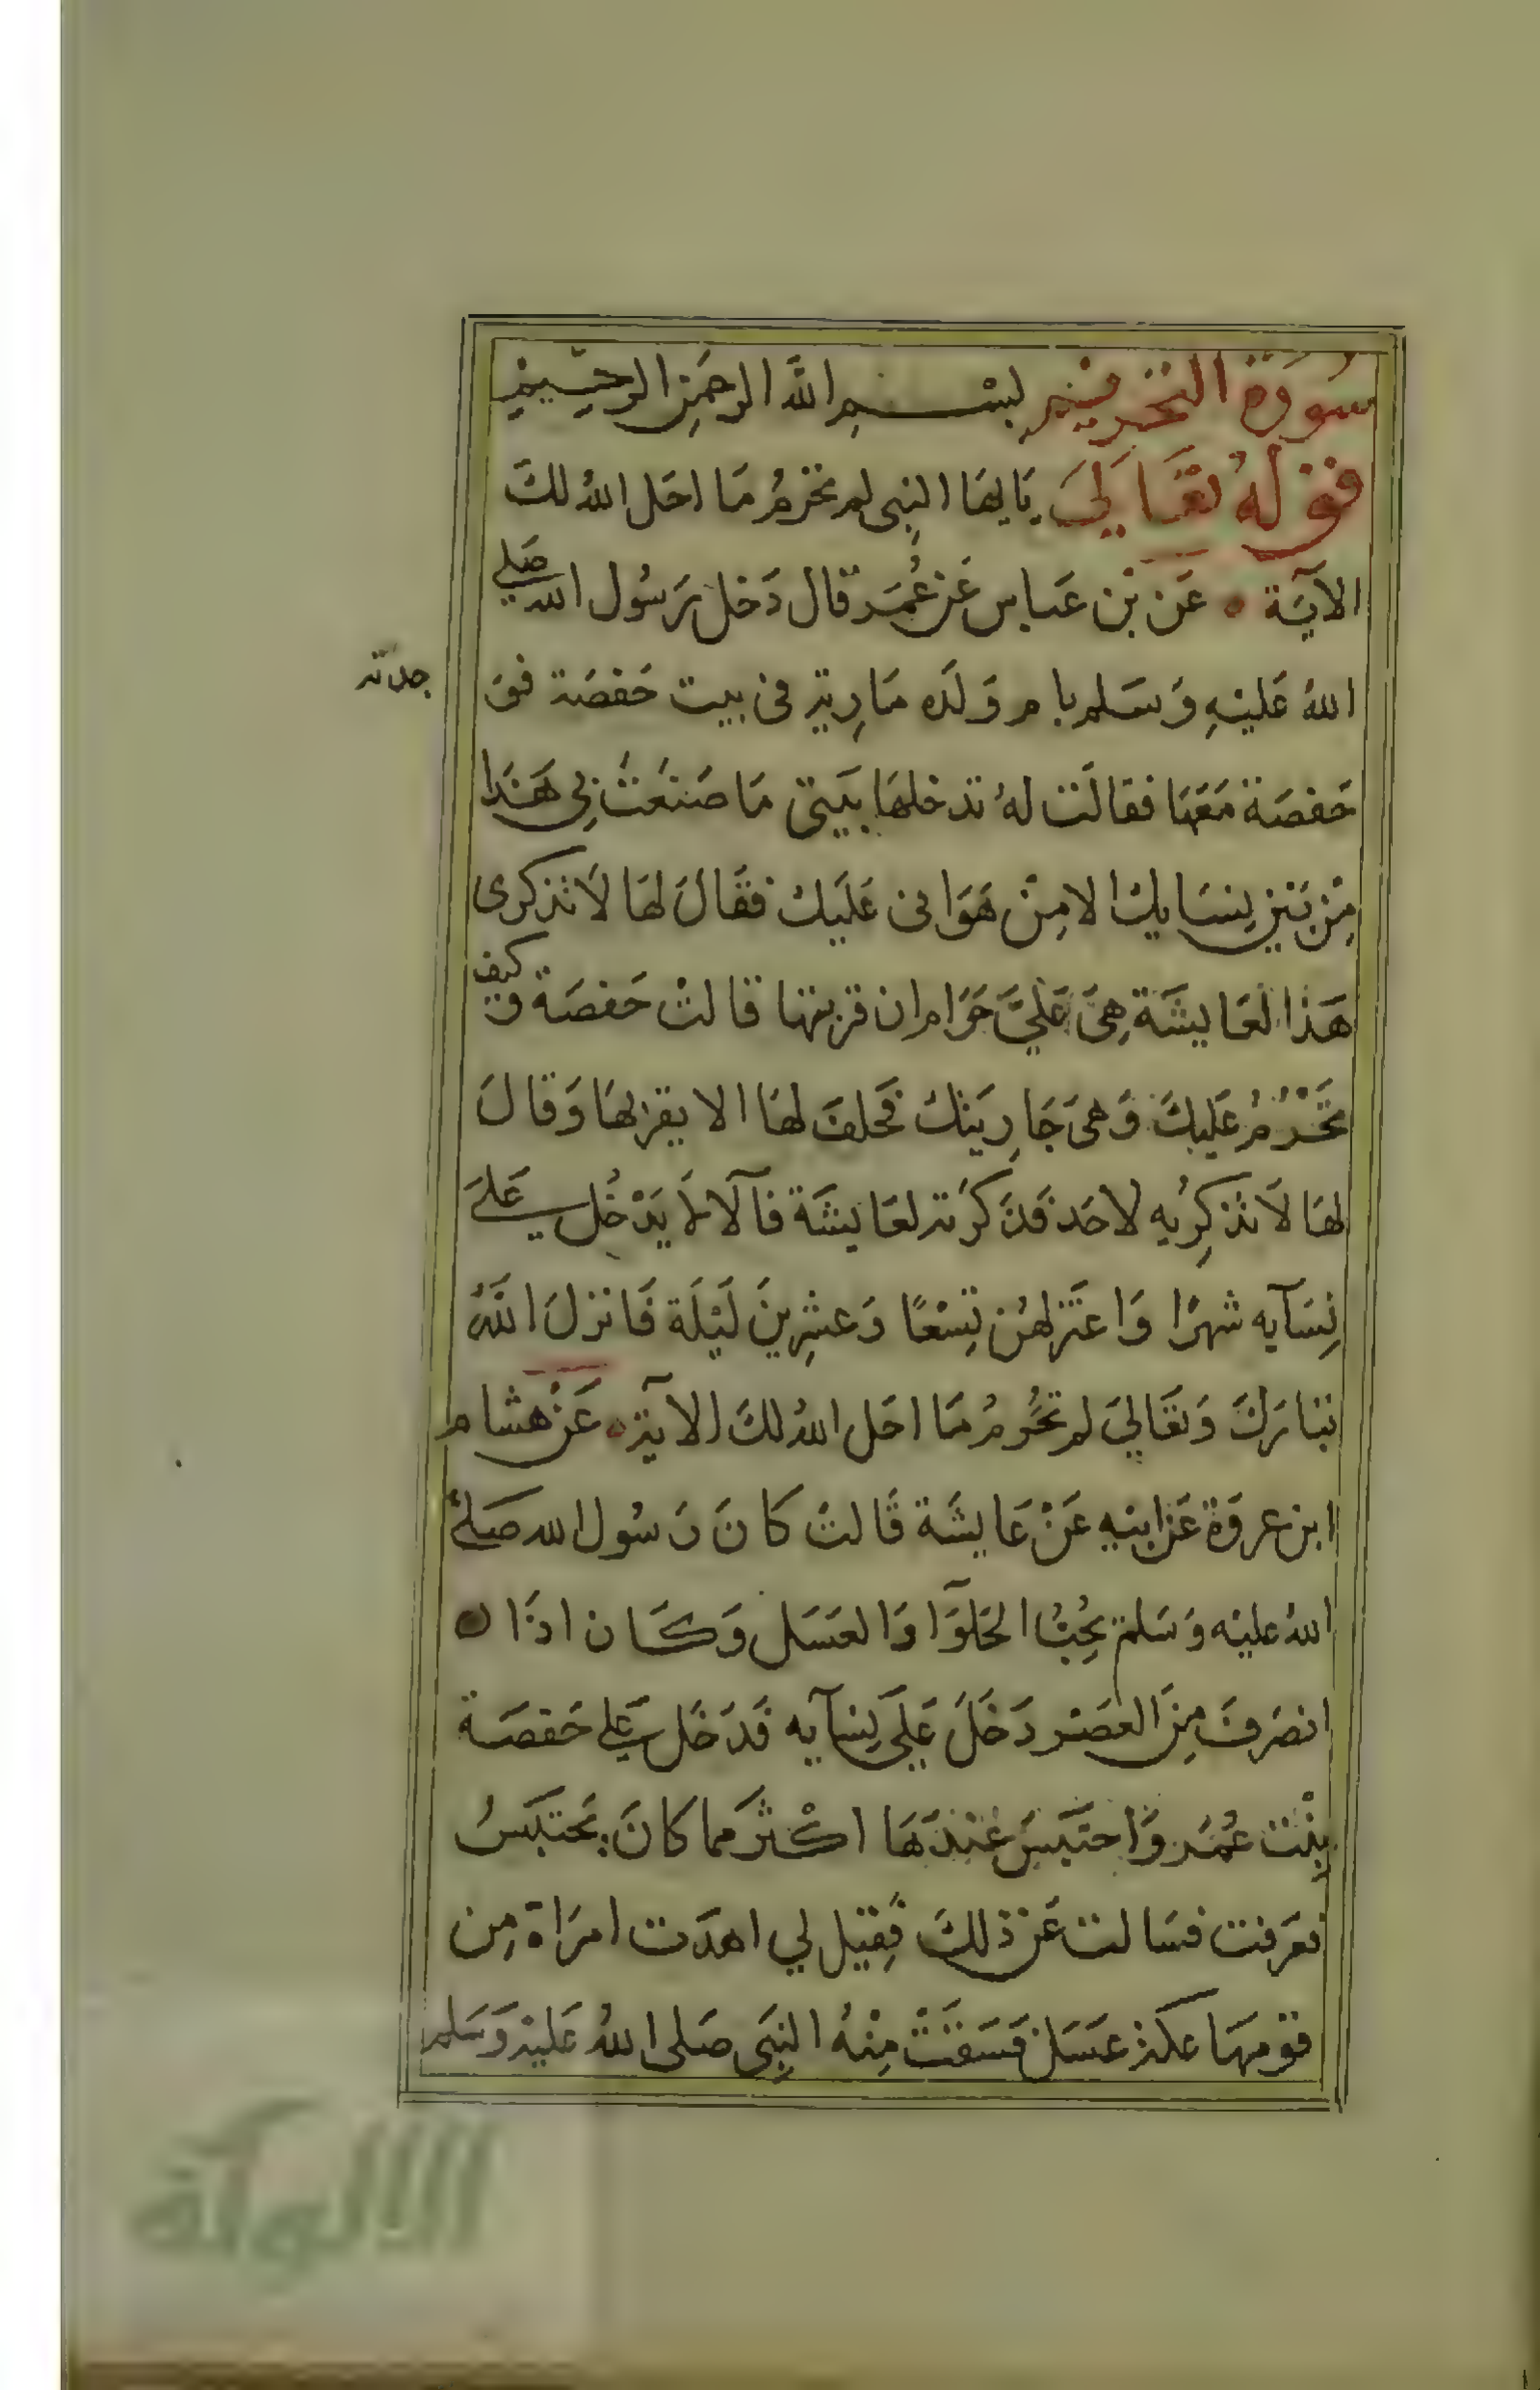 سُورَة التحريم بسم اللَّه الرحمَنِ الرحيم
قوله تعَالىَ يَايهَا النبِى لم تحرمُ مَا احَل اللهُ لكَ
الآيَة عَن بْن عَباس عَن عُمَر قال دَخل رَسُول الله صَلى
اللهُ عَليْهِ وَسَلم بام وَلَده مَارِية فى بيت حَفصَة فوَ
جدته
حَفصَة مَعَهَا فقالَت لهُ تدخلهَا بَيتى مَا صَنَعْتَ بِى هَذا
مِنْ بَيْن نِسَايِك الا مِنْ هَوَانى عَلَيك فقَالَ لهَا لَا تذكرى
هَذا لعَايشَة هِىَ عَليَّ حَرَام ان قربتها قالتْ حَفصَة وَكيف
تَحْرُمُ عَليكَ وَهىَ جَارِيَتك فحَلفَ لهَا الا يقربهَا وَقالَ
لهَا لَا تذكرِيه لاحَد فَذكرَته لعَايشَة فآلَا لَا يَدْخُل عَلىَ
نِسَآيه شهرًا وَاعتَزلهُن تِسْعًا وَعشرِينَ لَيْلَة فَانزلَ اللَّهُ
تبارَكَ وَتعَاليَ لم تحَرمُ مَا احَل اللهُ لكَ الآية عَنْ هشام
ابن عروَة عَن ابيهِ عَنْ عَايشَة قَالتْ كَانَ رَسُول الله صَلى
اللهُ عليْه وَسَلم يحُبُّ الحَلوَآ وَالعَسَل وَكَان اذَا
انصَرفَ مِنَ العَصْر دَخَلَ عَلَى نِسآيه فَدَخَل عَلى حَفصَة
بِنْت عُمَر وَاحتَبَسَ عِنْدَهَا اكْثرَ مما كَانَ يَحتَبسُ
فعَرفت فسَالت عَن ذلكَ فقِيل لي اهدَت امرَاة مِن
قومِهَا عكة عَسَل فسَقَتْ مِنْهُ النبِى صَلى اللهُ عَليْه وَسَلم
الألوكة